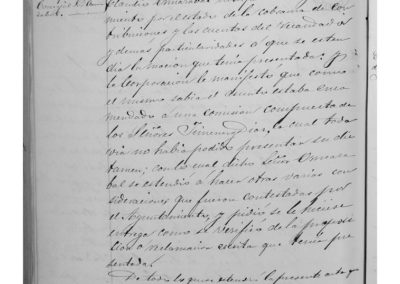 miento por el estado de la cobranza de con
tribuciones y las cuentas del Recaudador
y demas particularidades á que se esten
dia la mocion que tenia presentada; y
la Corporacion le manifestó que como
el mismo sabia el asunto estaba enco
mendado a una comision compuesta de
los Señores Jimenez Diaz, la cual toda
via no habia podido presentar su dic
tamen; con lo cual dicho Señor
bal se estendió a hacer otras varias con
sideraciones que fueron contestadas por
el Ayuntamiento, y pidió se le hiciese
entrega como se verificó de la proposi
cion o reclamacion escrita que tenia pre
sentada.
De todo lo que se estiende la presente acta que